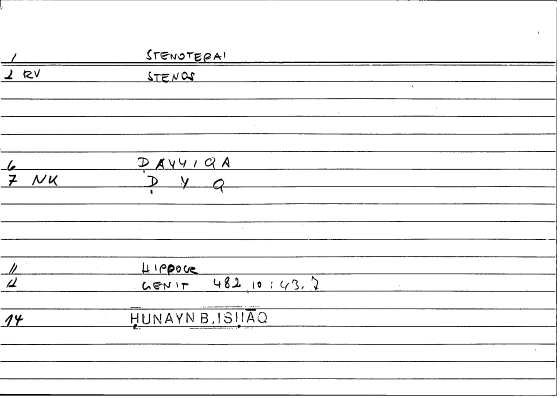 1 STENOTERAI
2 RV STENOS
6 ḌAYYIQA
7 NK Ḍ Y Q
11 HIPPOCR
12 GENIT 482,10 : 43.7
14 ḤUNAYN B. ISḤĀQ